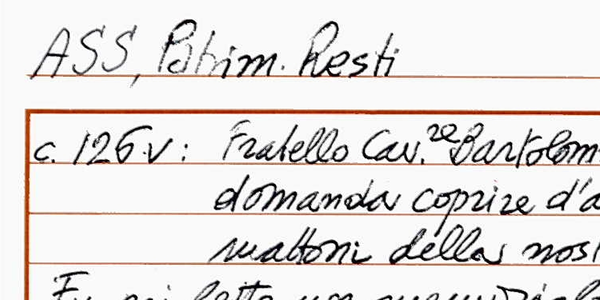 ASS, Patrim. Resti
c. 126.v: Fratello Cav.re Bartolom
domanda coprire d'a
mattoni della nost
Fu poi letto una